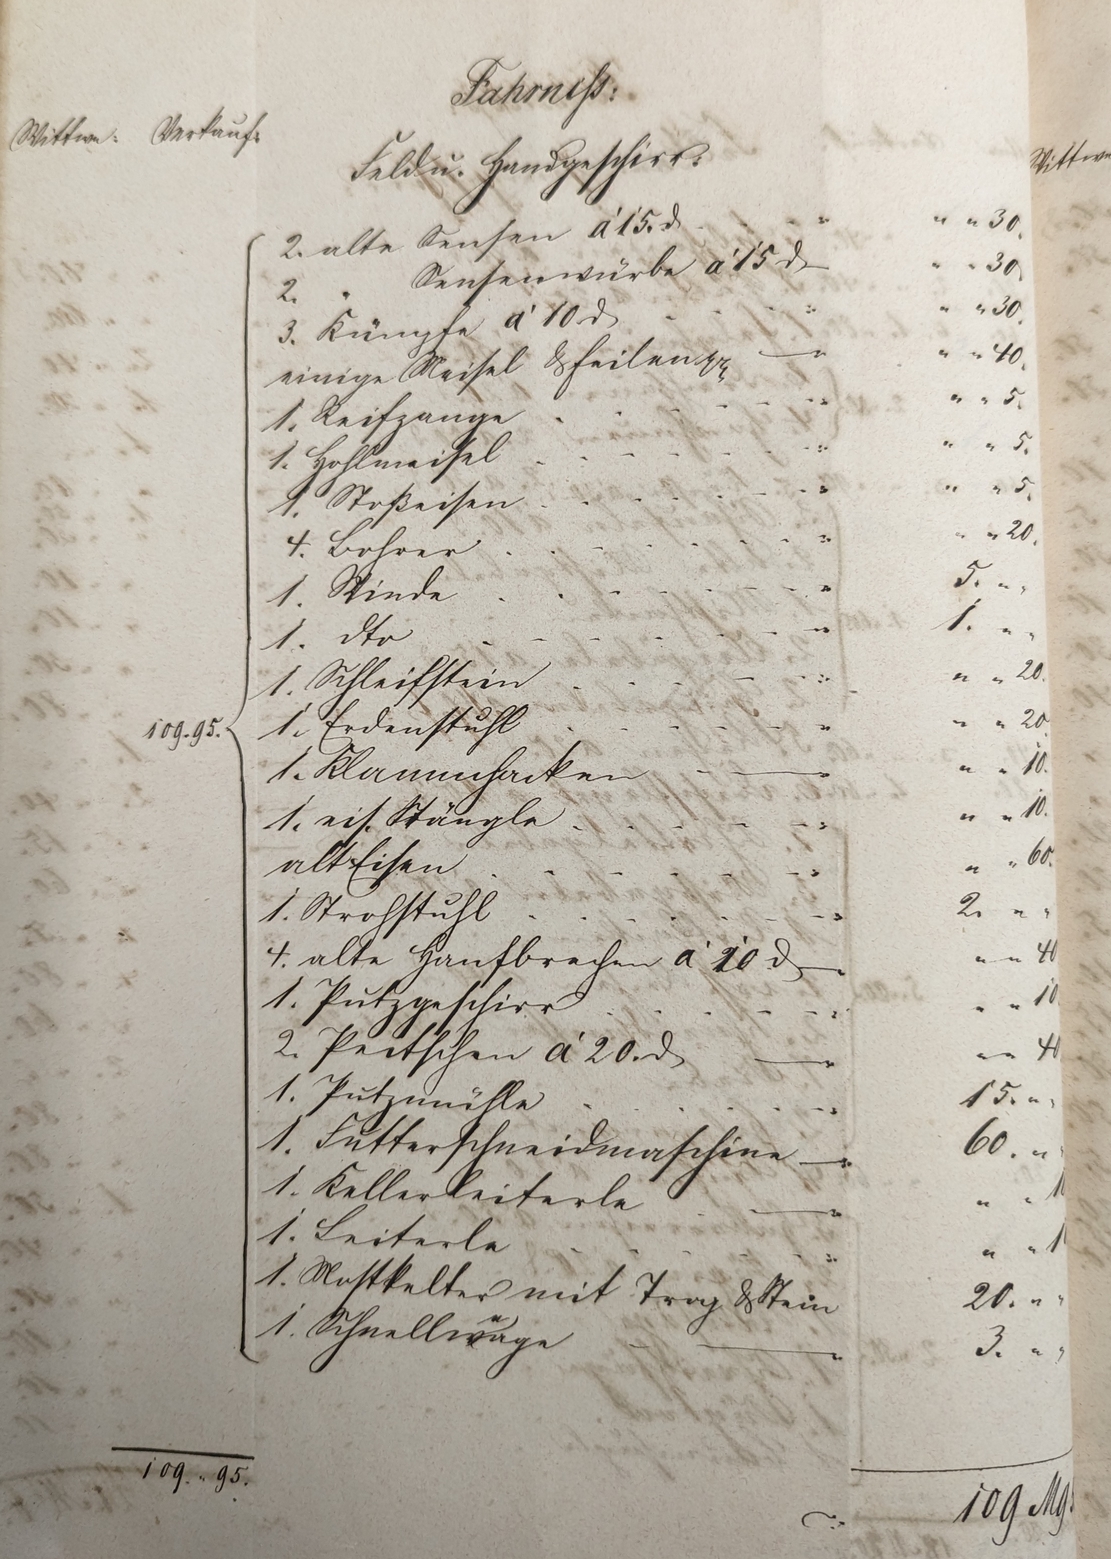 Fahrniß:
Wittwe. Verkauf.
Feld u. Handgeschirr:
Wittwe
2. alte Sensen á 15. d " " 30.
2. " Sensenwürbe á 15 d " " 30
3. Kümpfe á 10 d " " 30.
einige Meisel & Feilen " " 40.
1. Reifzange " " 5.
1. Hohlmeisel " " 5.
1. Stoßeisen " " 5.
4. Bohrer " " 20.
1. Winde 5. " "
1. dto 1. " "
1. Schleifstein " " 20.
1. Erdenstuhl " " 20
109. 95. 1. Klammhacken " " 10.
1. eis. Stängle " " 10.
alt Eisen " " 60.
1. Strohstuhl 2. " "
4. alte Hanfbrechen á 10 d " " 40
1. Putzgeschirr " " 10
2. Peitschen á 20. d " " 40
1. Putzmühle 15. " "
1. Futterschneidmaschine 60. " "
1. Kellerleiterle " " 1
1. Leiterle " " 1
1. Mostkelter mit Trog & Stein 20. " "
1. Schnellwage 3. " "
109. " 95. 109 M 9